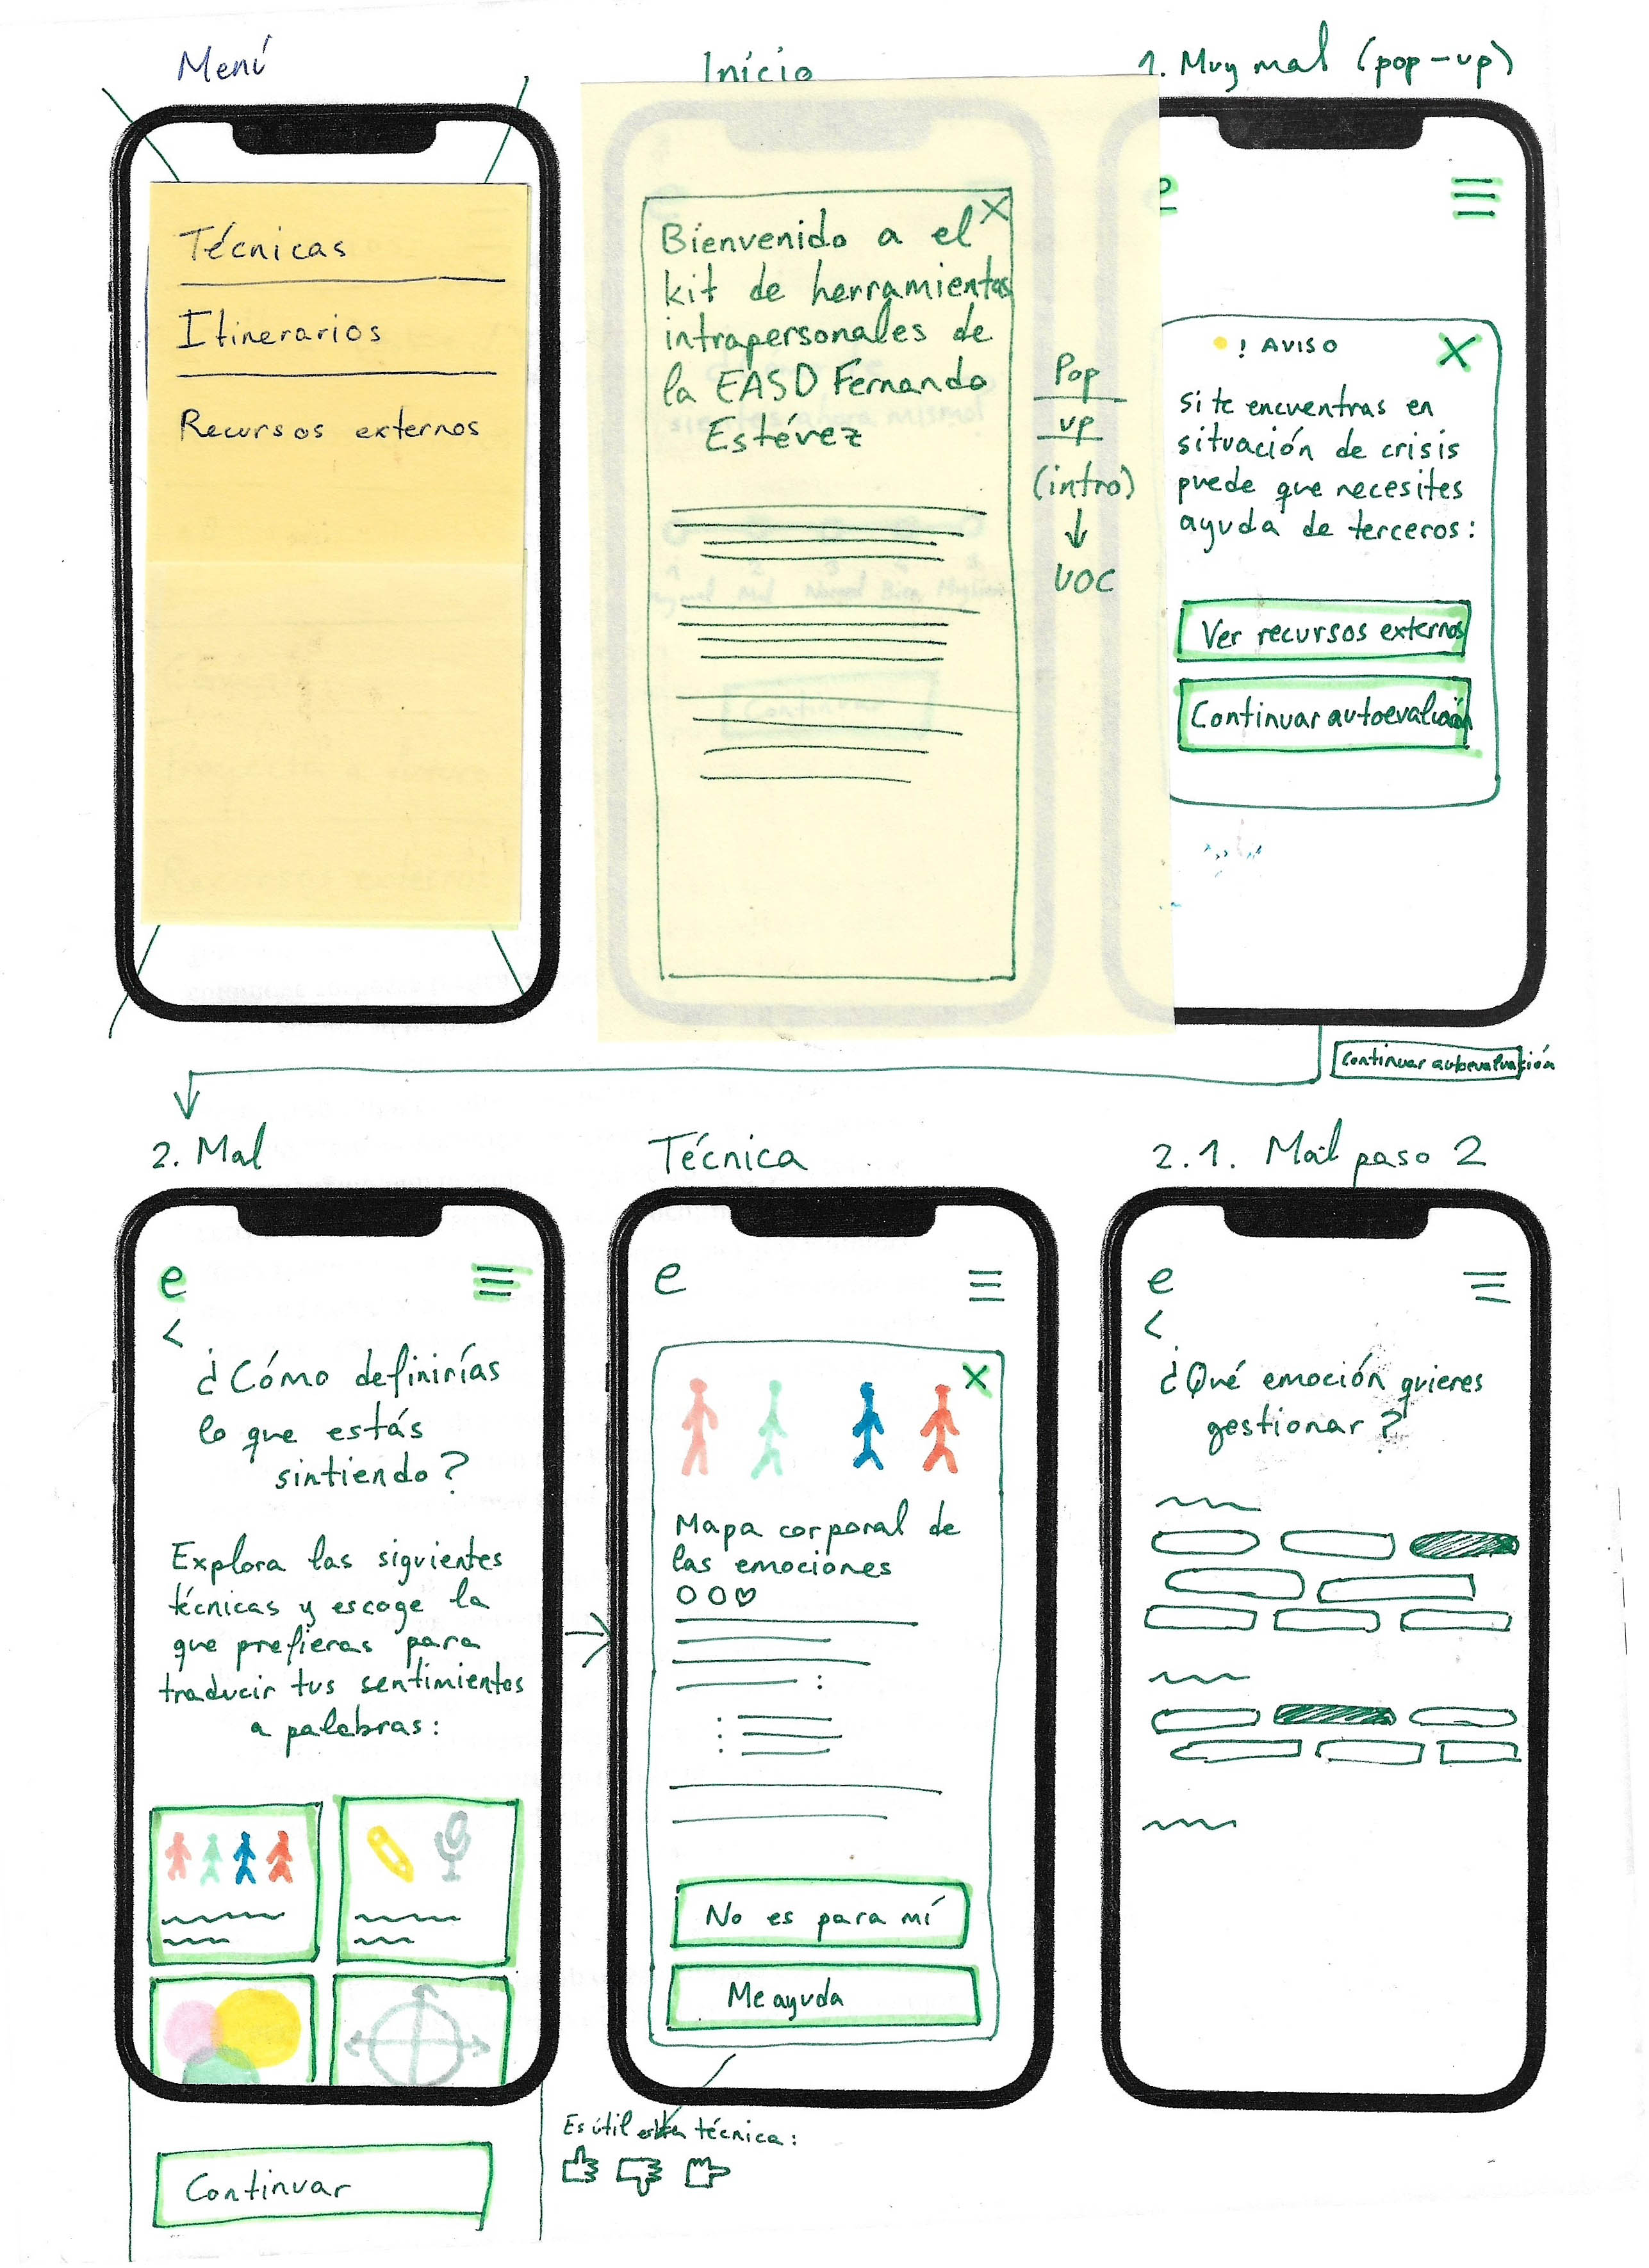 Mení
Técnicas
Itinerarios
Recursos externos
Inicio
Bienvenido a el
kit de herramientas
intrapersonales de
la EASD Fernando
Estévez
X
Pop
up
(intro)
↓
UOC
Continuar
1. Muy mal (pop-up)
e
! AVISO
X
Si te encuentras en
situación de crisis
puede que necesites
ayuda de terceros:
Ver recursos externos
Continuar autoevaluación
Continuar autoevaluación
2. Mal
e
<
¿Cómo definirías
lo que estás
sintiendo?
Explora las siguientes
técnicas y escoge la
que prefieras para
traducir tus sentimientos
a palabras:
Continuar
Técnica
e
X
Mapa corporal de
las emociones
No es para mí
Me ayuda
Es útil esta técnica:
2.1. Mal paso 2
e
<
¿Qué emoción quieres
gestionar?